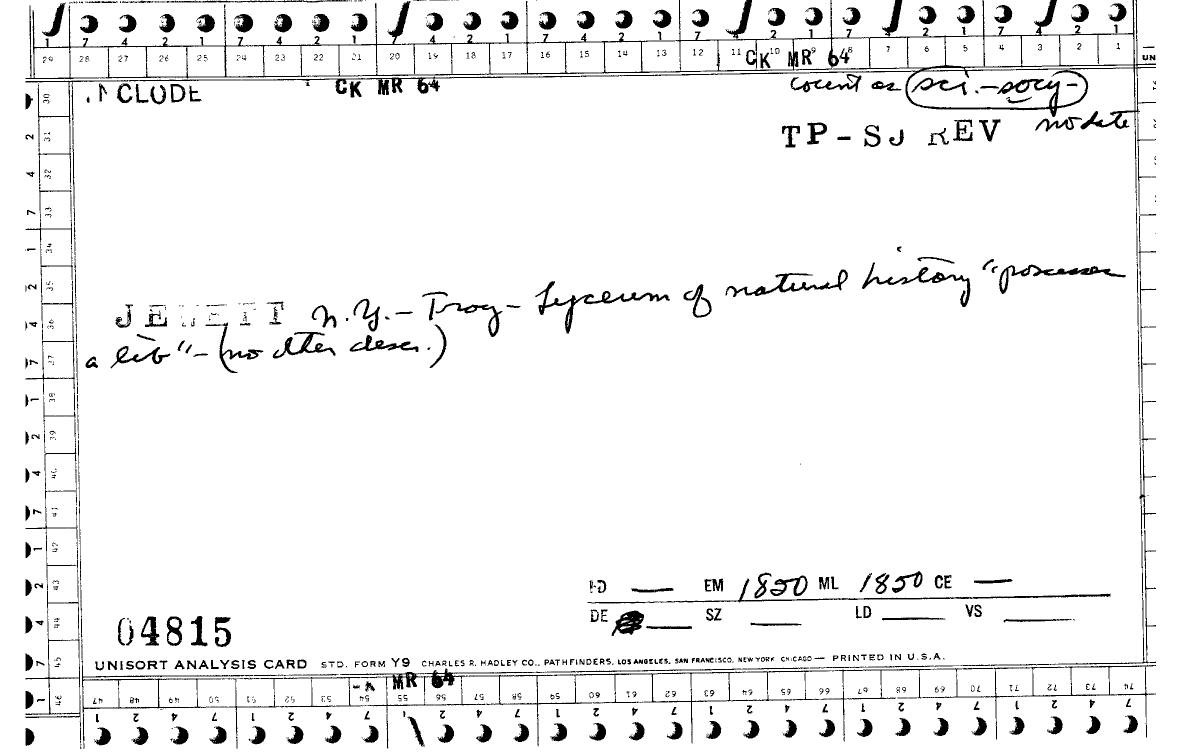 1 7 4 2 1 7 4 2 1 7 4 2 1 7 4 2 1 7 4 2 1 7 4 2 1
29 28 27 26 25 24 23 22 21 20 19 18 17 16 15 14 13 12 11 10 9 8 7 6 5 4 3 2 1
CK MR 64
NCLUDE CK MR 64 count as sci.-socy-
TP-SJ REV no date
JEWETT N.Y.- Troy- Lyceum of natural history "possesses
a lib"-(no other descr.)
FD — EM 1850 ML 1850 CE —
DE SZ LD VS
04815
UNISORT ANALYSIS CARD STD. FORM Y9 CHARLES R. HADLEY CO., PATHFINDERS, LOS ANGELES, SAN FRANCISCO, NEW YORK CHICAGO — PRINTED IN U.S.A.
MR 64
47 48 49 50 51 52 53 54 55 56 57 58 59 60 61 62 63 64 65 66 67 68 69 70 71 72 73 74
1 2 4 7 1 2 4 7 1 2 4 7 1 2 4 7 1 2 4 7 1 2 4 7 1 2 4 7